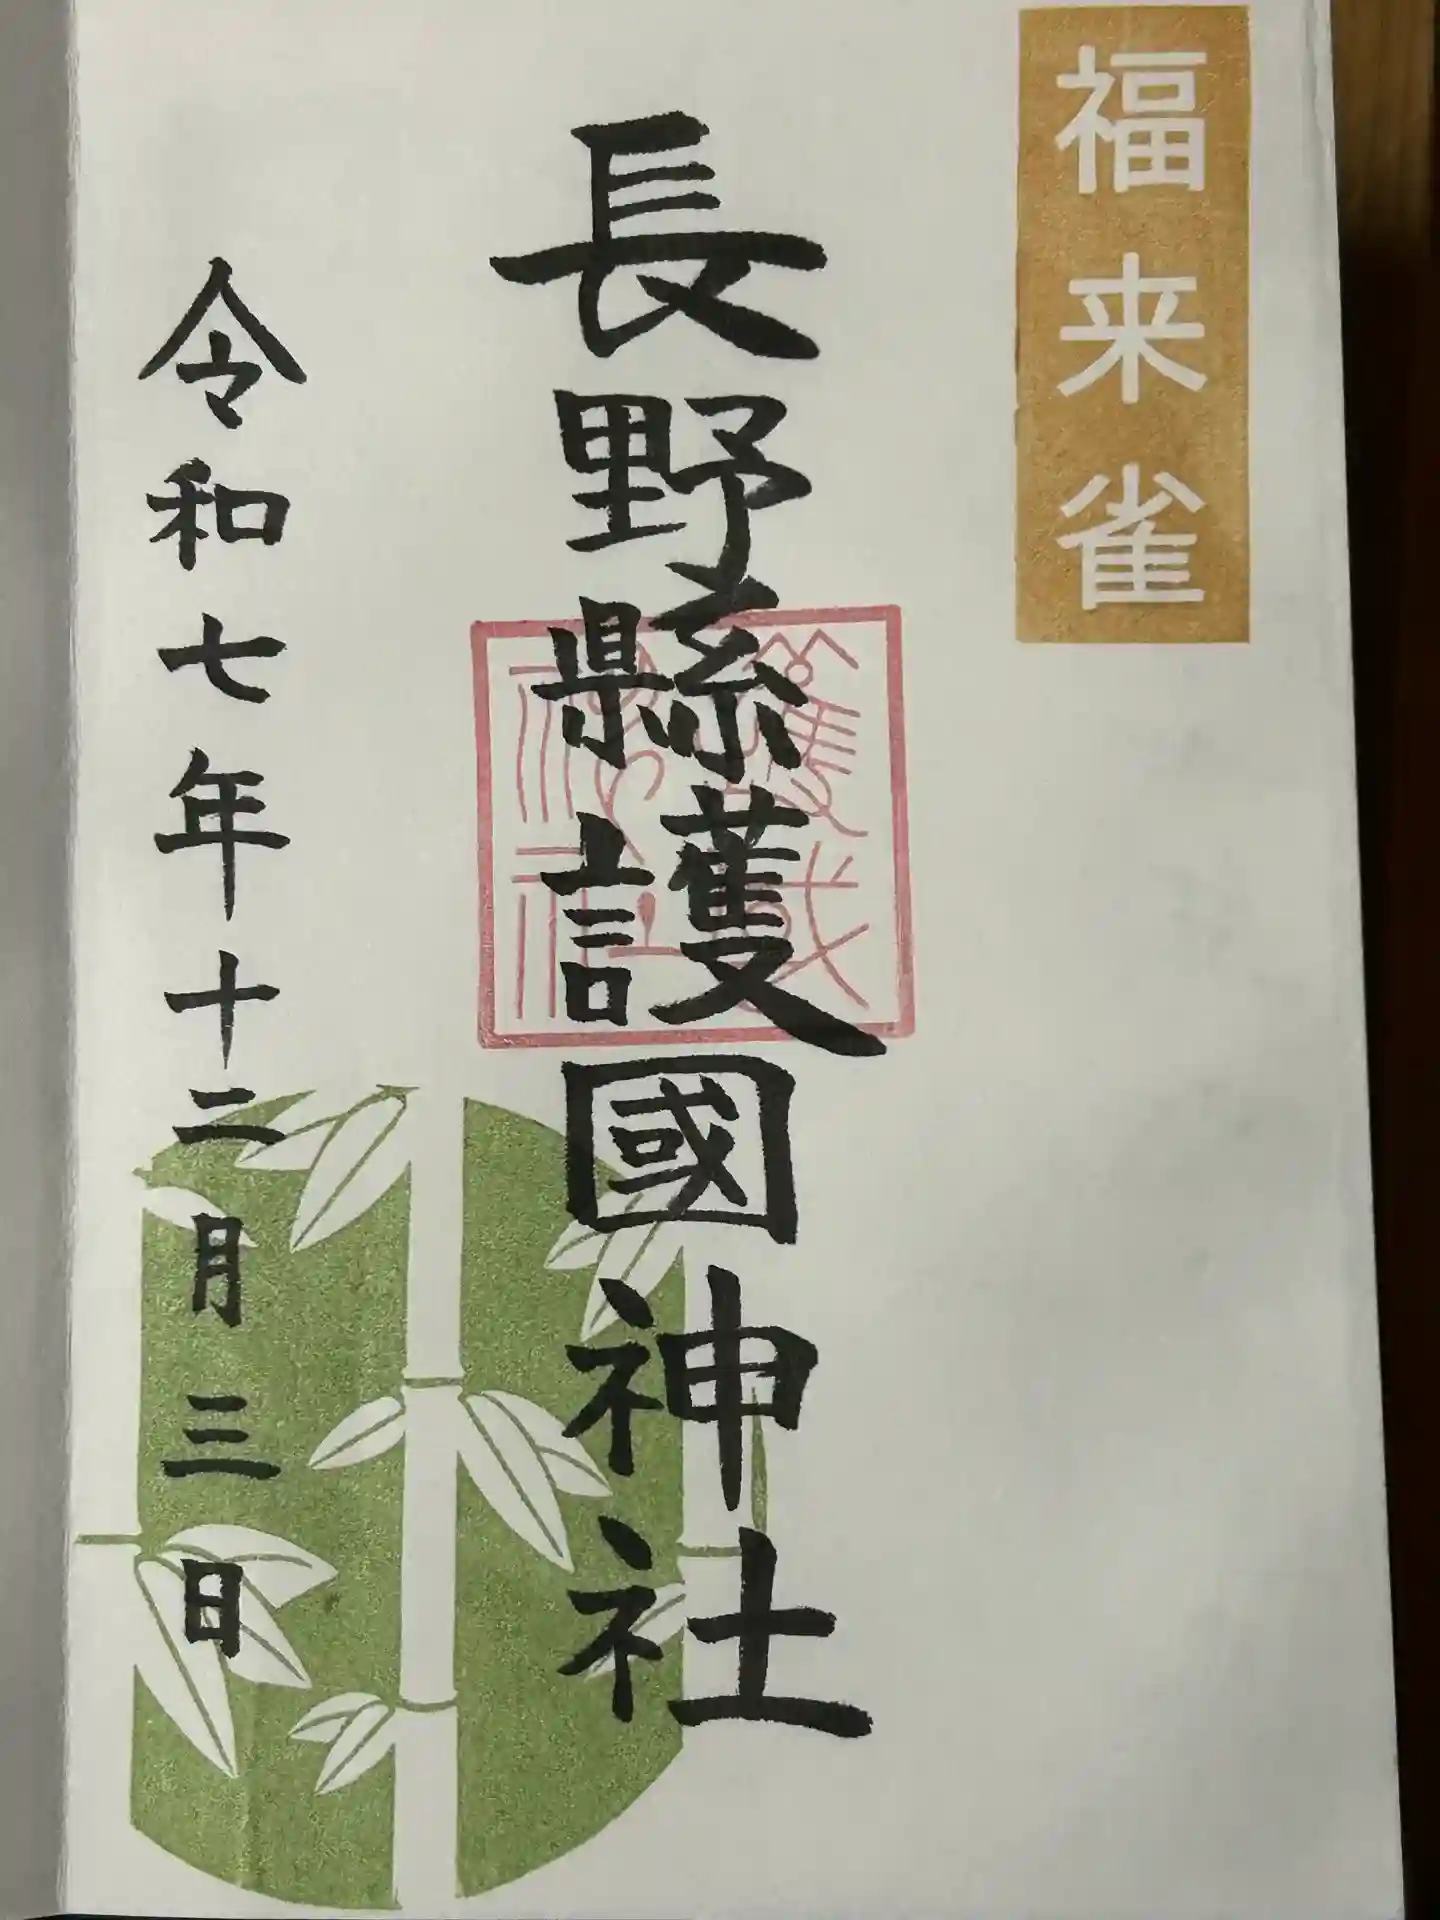 福来雀
長野縣護國神社
令和七年十二月三日